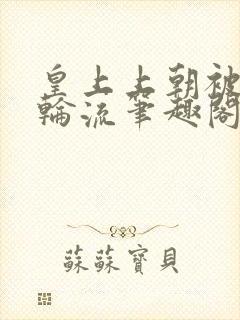 皇上上朝被
輪流筆趣閣
蘇蘇寶貝